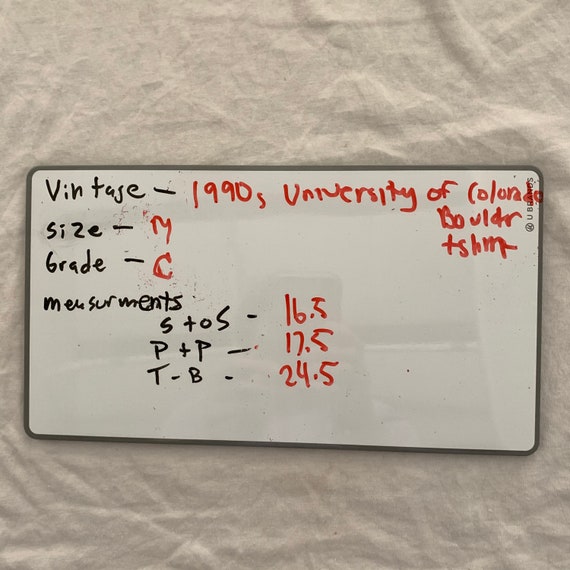 Vintage - 1990s University of Colorado
Bouldr
tshirt
size - M
Grade - C
measurments
S to S - 16.5
P t P - 17.5
T - B - 24.5
U BRANDS